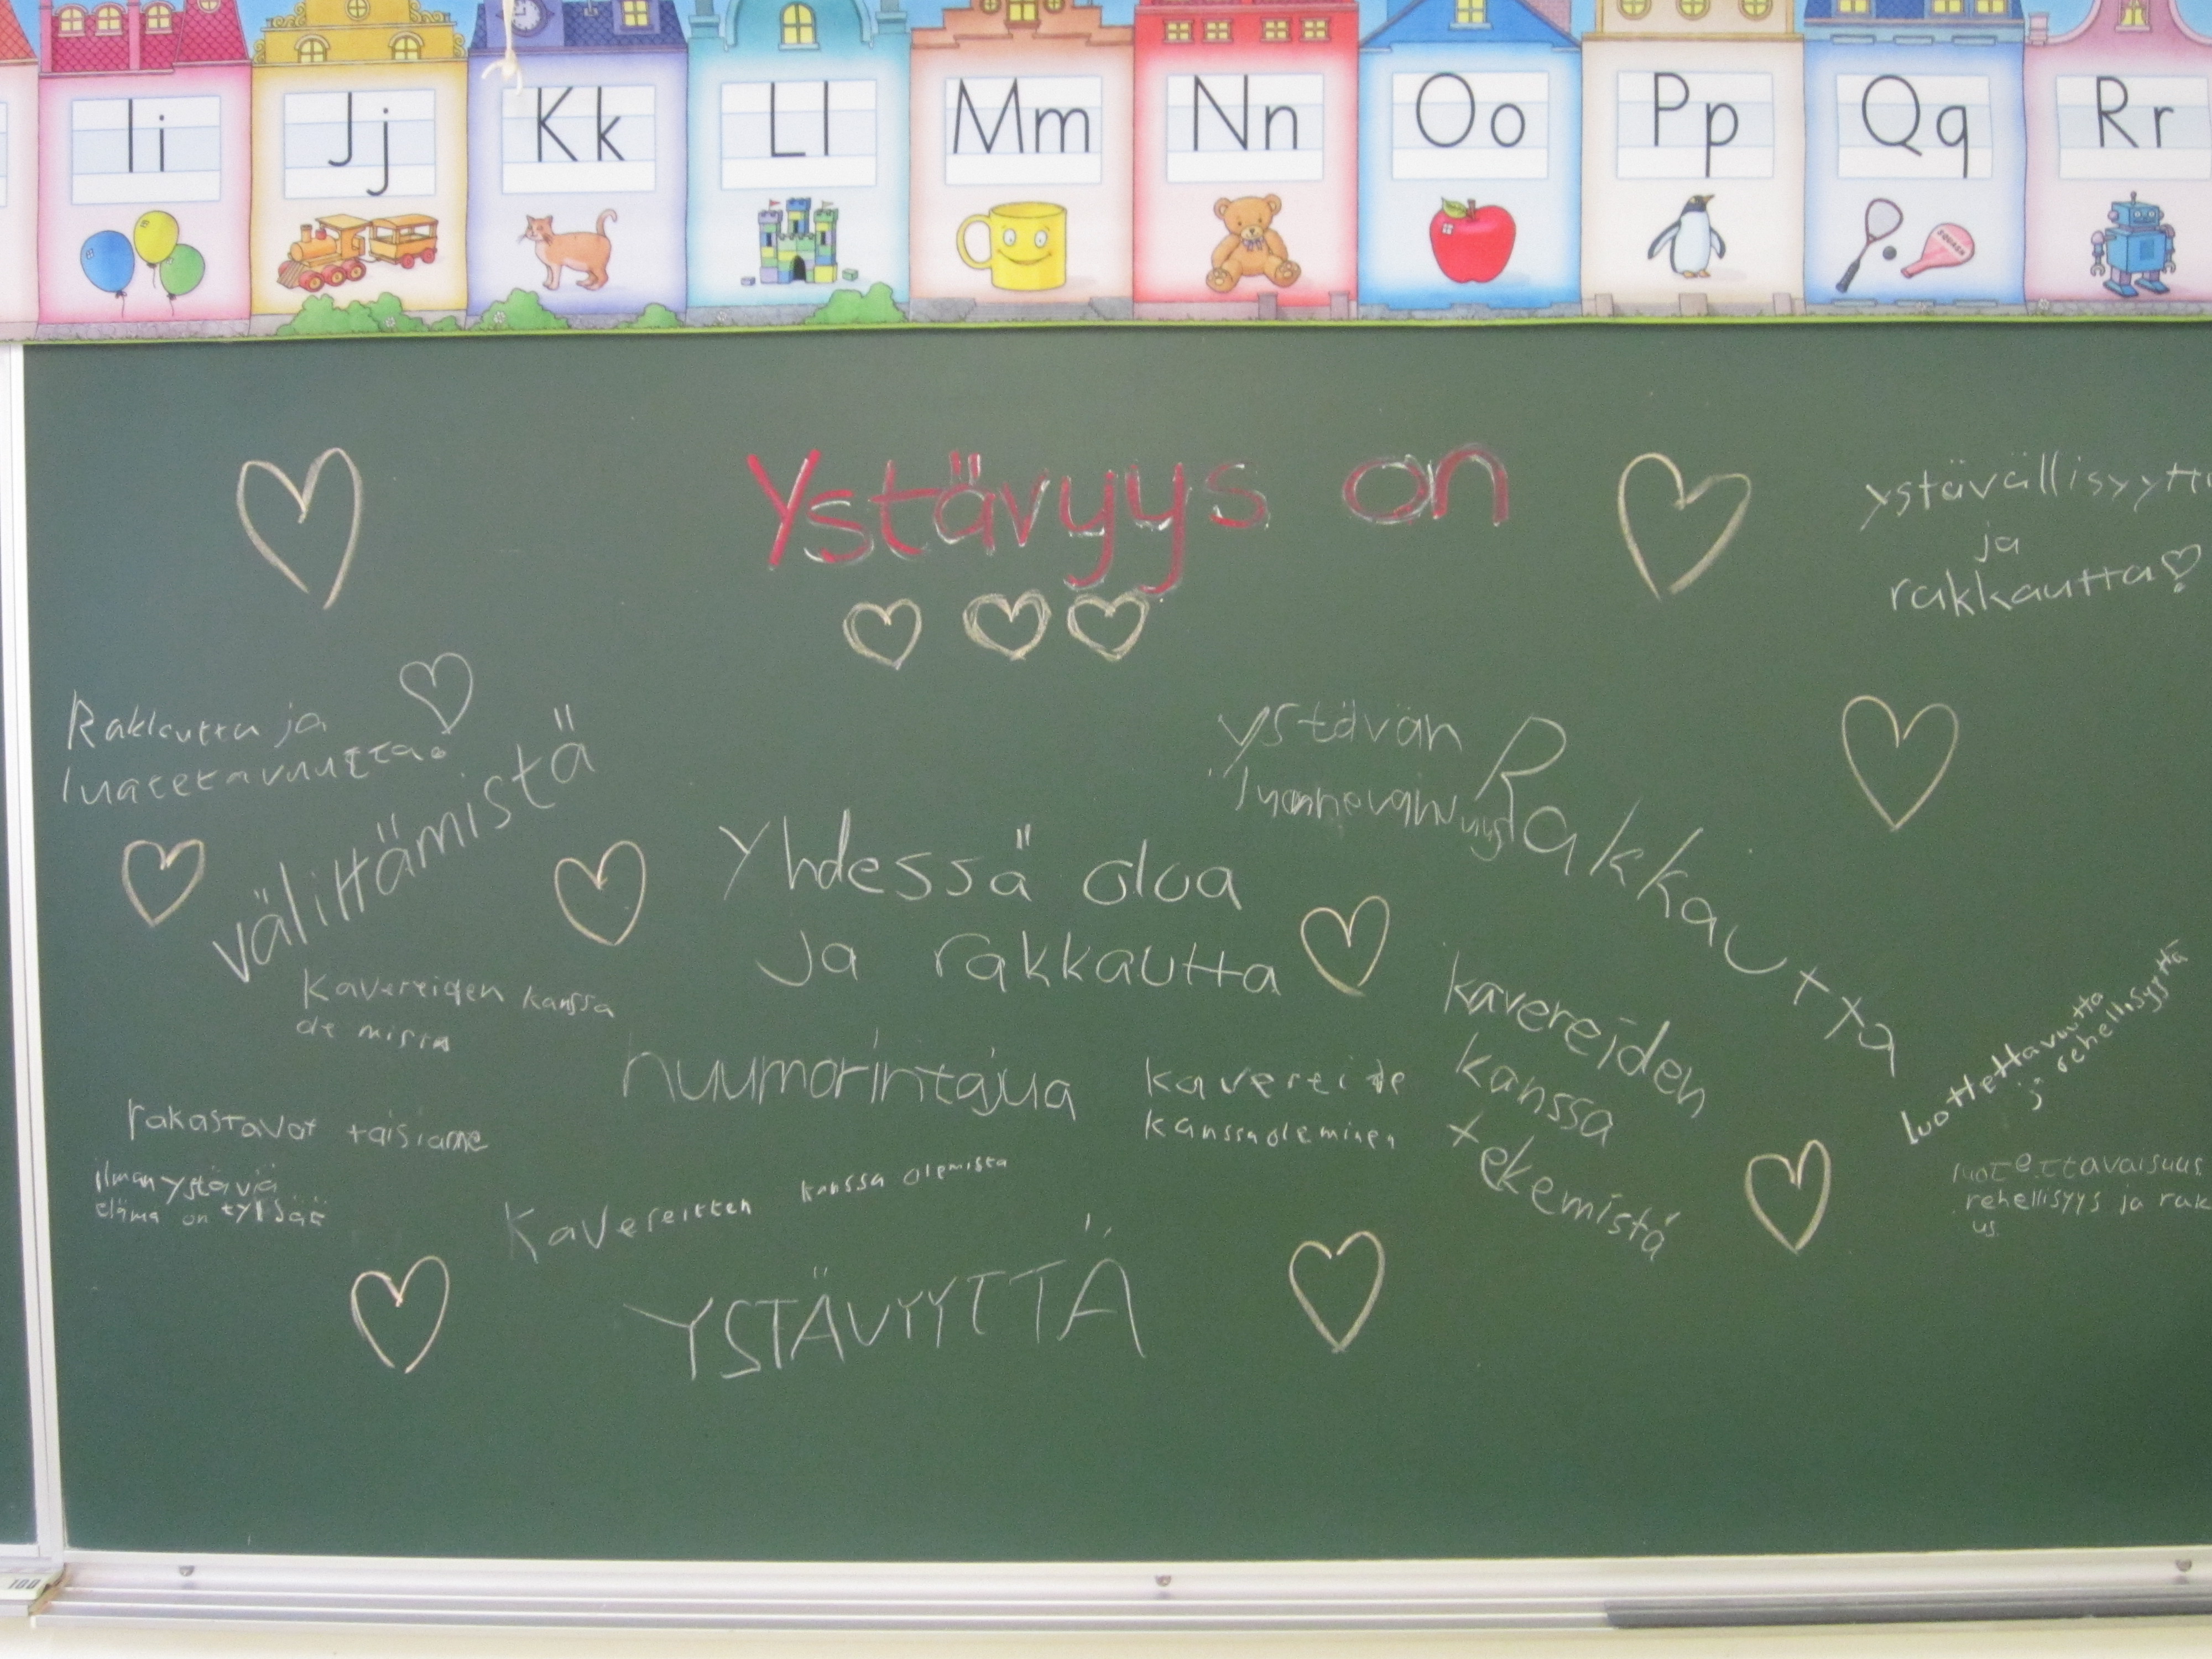 Ii Jj Kk Ll Mm Nn Oo Pp Qq Rr
Ystävyys on
ystävällisyyttä
ja
rakkautta
Rakkautta ja
luatettavuutta
välittämistä
ystävän
Rakkautta
Yhdessä oloa
ja rakkautta
Kavereiden kanssa
huumorintajua
kavereide
kanssa oleminen
kavereiden
kanssa
tekemistä
luottettavuutta
ja rehellisyyttä
rakastavat toisiamme
ilman ystäviä
elämä on tylsää
Kavereitten kanssa olemista
luotettavaisuus
rehellisyys ja rak
us
YSTÄVYYTTÄ
100